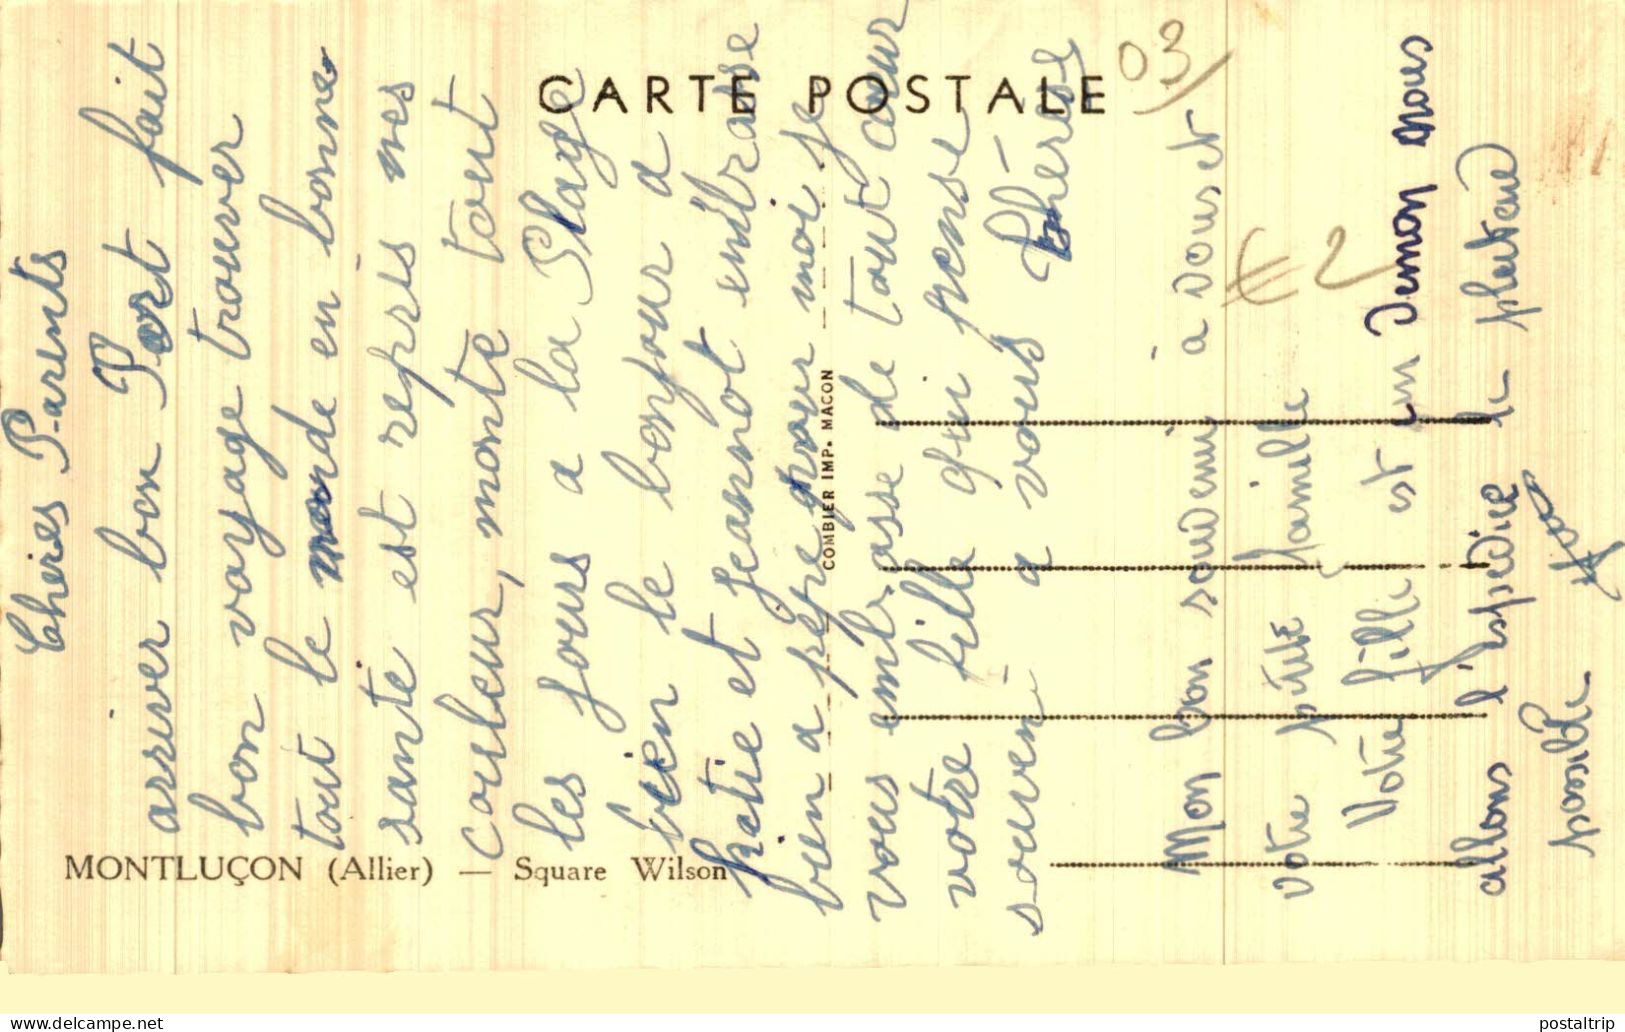 CARTE POSTALE
03
€ 2
Cheries Parents
arriver bon Port fait
bon voyage trouver
tout le monde en bonne
santé est repris mes
couleur, monte tout
les jours a la Plage
bien le bonjour a
katie et Jeannot embrasse
bien a pépé pour moi je
vous embrasse de tout cœur
votre fille qui pense
souvent a vous Thérèse
Mon bon souvenir à vous et
votre petite famille
Votre fille est un démon nous
allons l'espedice le
possible
COMBIER IMP. MACON
MONTLUÇON (Allier) — Square Wilson
www.delcampe.net
postaltrip